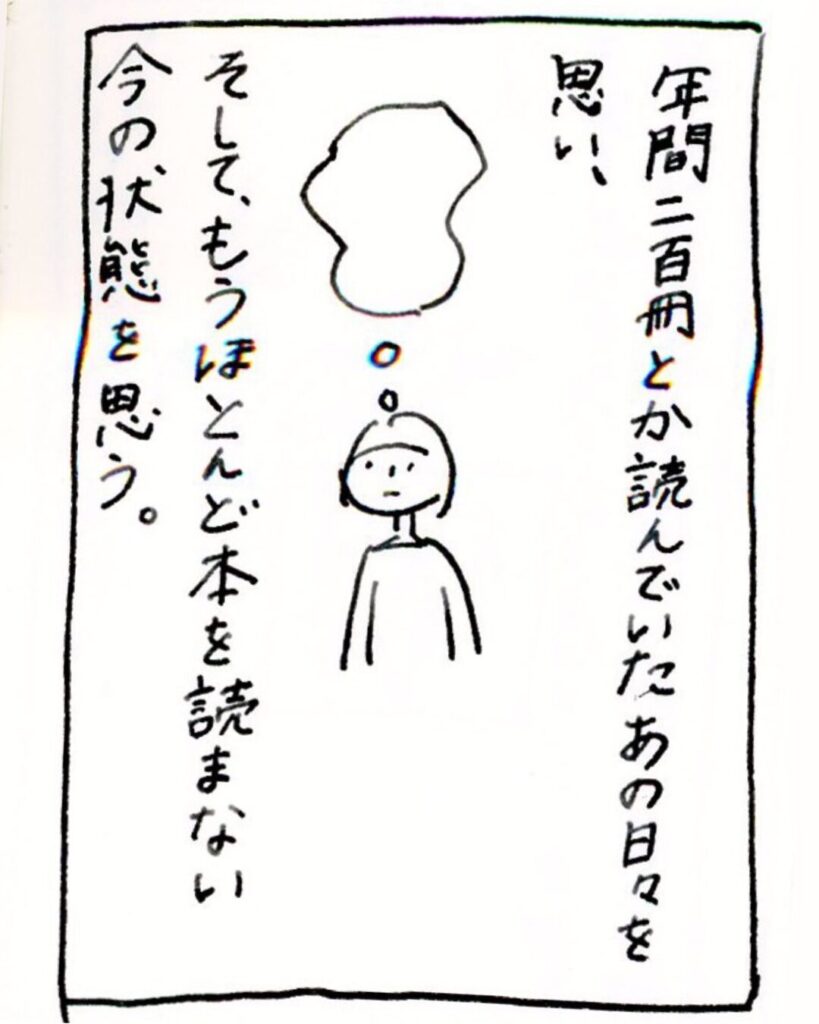 年間二百冊とか読んでいたあの日々を
思い、
そして、もうほとんど本を読まない
今の状態を思う。